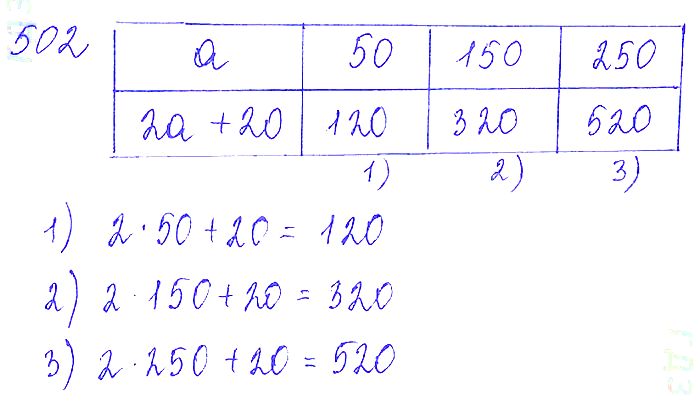 502
a 50 150 250
2a + 20 120 320 520
1) 2) 3)
1) 2 · 50 + 20 = 120
2) 2 · 150 + 20 = 320
3) 2 · 250 + 20 = 520
ГДЗ